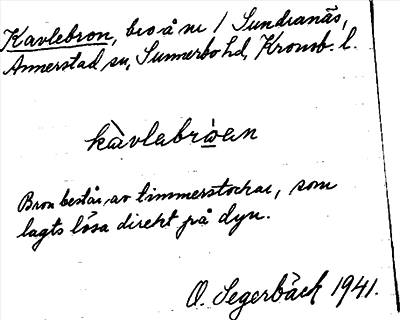 Kavlebron, bro å nr 1 Sundranäs,
Annerstad sn, Sunnerbo hd, Kronob. l.
kàvlabrώan
Bron består av timmerstockar, som
lagts lösa direkt på dyn.
O. Segerbäck 1941.